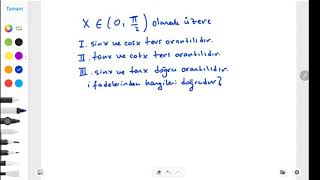 Tamam
x ∈ (0, π/2) olmak üzere
I. sinx ve cosx ters orantılıdır.
II. tanx ve cotx ters orantılıdır.
III. sinx ve tanx doğru orantılıdır.
ifadelerinden hangileri doğrudur?